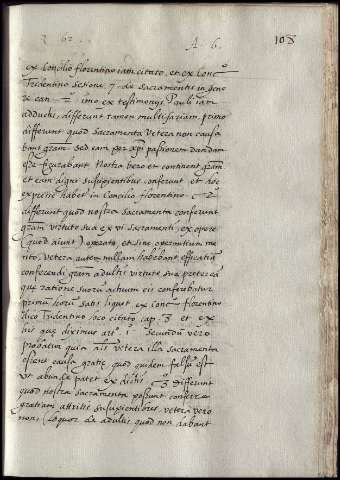 A 6. 108
ex Concilio florentino iam citato, et ex Conc.
Tridentino sesione 7 de sacramentis in gene
re can. imo ex testimonijs Pauli iam
adductis differunt tamen multifariam. primo
differunt quod sacramenta Vetera non causa
bant gram̃ sed eam per xp̃i pasionem dandam
esse figurabant Nostra vero et continent gram̃
et eam digne suscipientibus conferunt et hoc
expresse habet in Concilio florentino. 2º
differunt quod nostra sacramenta conferunt
gram̃ virtute sua ex vi sacramenti, ex opere
(quod aiunt) operato et sine operantium me
rito, Vetera autem nullam habebant efficatiã
conferendi gram̃ adultis virtute sua preter eã
quę ratione suorũ actuum eis conferebatur
primũ horũ satis liquet ex Conc. florentino
dicto Tridentino loco citato cap. 3 et ex
his quę diximus art. 1 secundũ vero
probatur quia alias vetera illa sacramenta
essent causa gratię quod quidem falsũ est
Vt abunde patet ex dictis 3 differunt
quod nostra sacramenta possunt conferre
gratiam attritis suscipientibus, vetera vero
non: (loquor de adultis quod non dabant